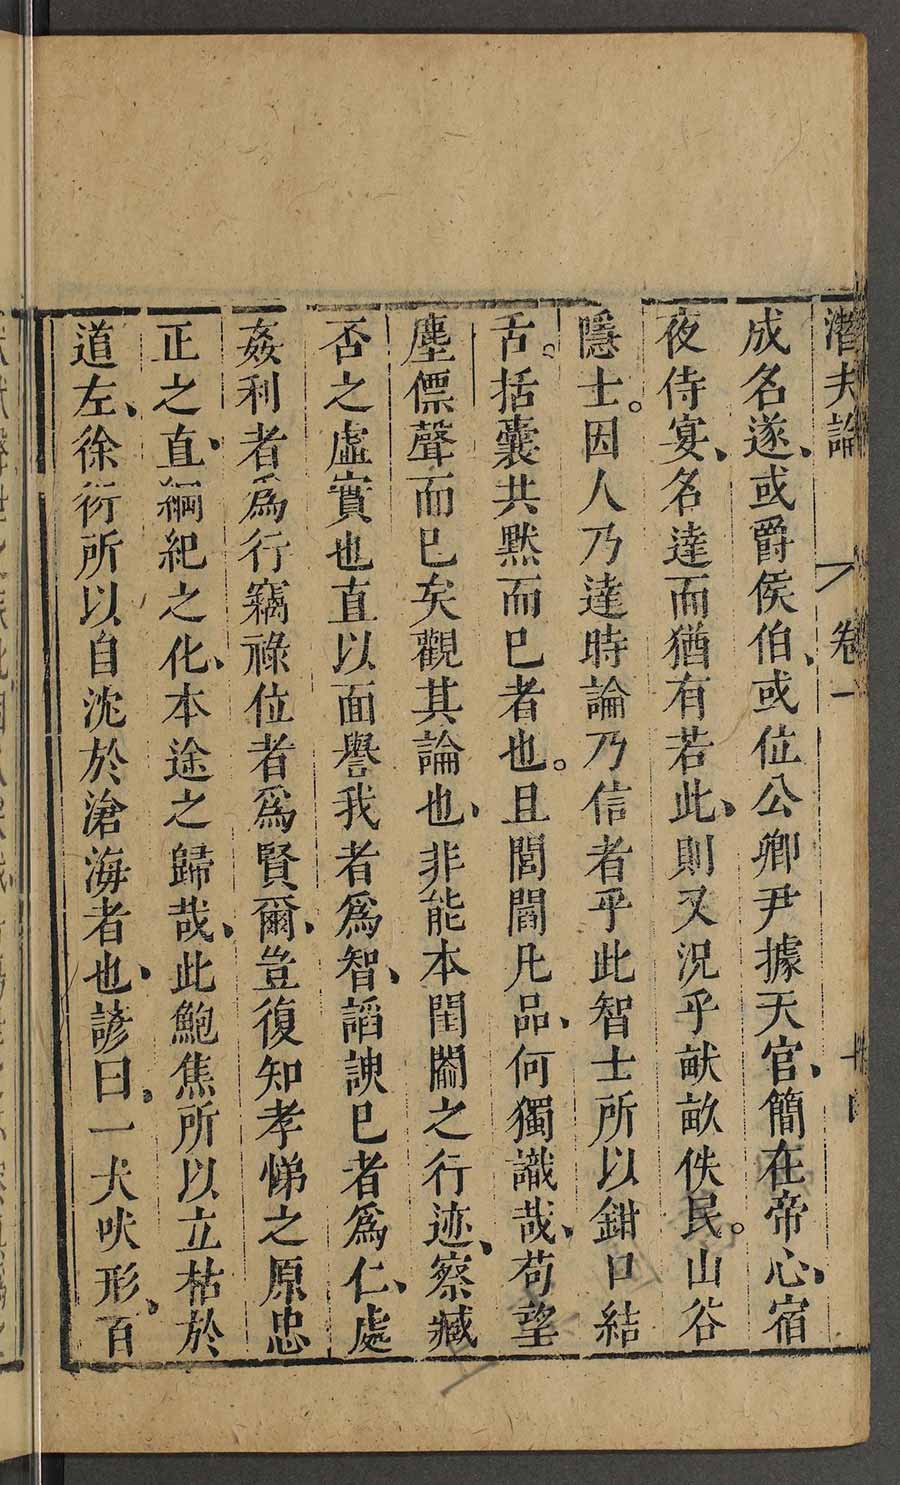 潛夫論　卷一　十四
成名遂、或爵侯伯、或位公卿尹據天官、簡在帝心、宿
夜侍宴、名達而猶有若此、則又况乎畎畝佚民。山谷
隱士。因人乃達時論乃信者乎此智士所以鉗口結
舌。括囊共黙而已者也。且閭閻凡品、何獨識哉、苟望
塵僄聲而已矣觀其論也、非能本閨闥之行迹、察臧
否之虛實也直以面譽我者爲智、謟諛已者爲仁、處
姦利者爲行竊祿位者爲賢爾、豈復知孝悌之原忠
正之直、綱紀之化、本途之歸哉、此鮑焦所以立枯於
道左、徐衍所以自沈於滄海者也、諺曰、一犬吠形、百